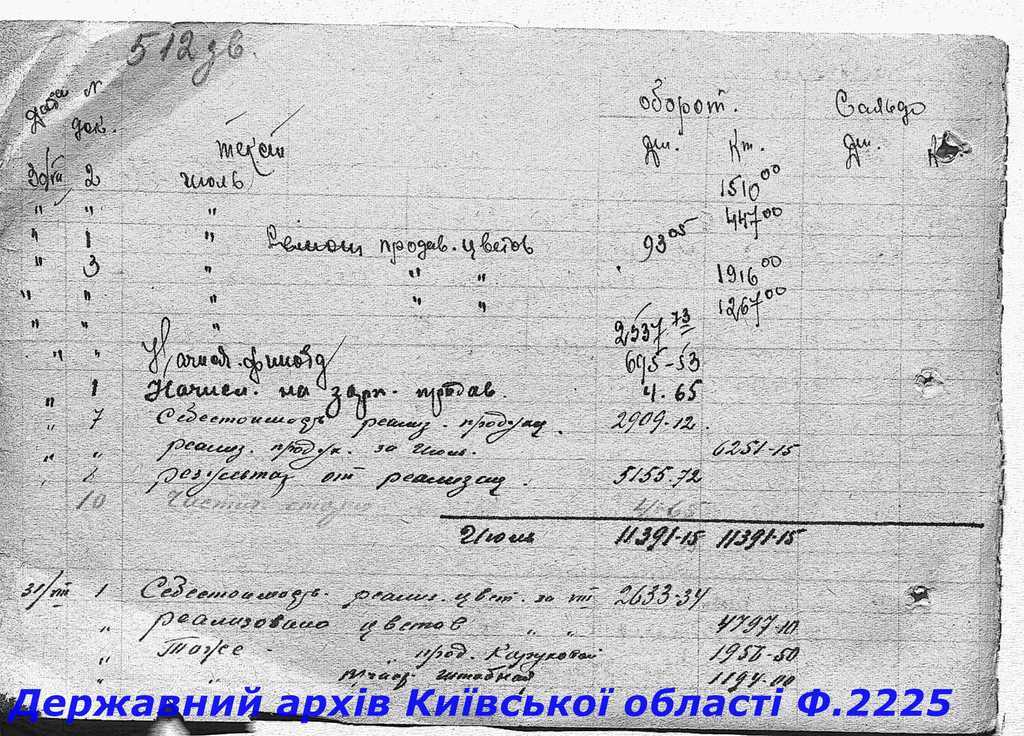 512 зв.
оборот. Сальдо
Дата № док. текст Дт. Кт. Дт. К
30/VII 2 Июль 1510 00
" " " 447 00
" 1 " продав. цветов 93 05
" 3 " " " 1916 00
" " " " " 1267 00
" " " 2537 73
" " 695-53
" 1 Начисл. на зарп. продав. 4.65
" 7 Себестоимость реализ. продукц. 2909-12.
" " реализ. продук. за Июль. 6251-15
" результат от реализац. 5155.72
10 4-65
Июль 11391-15 11391-15
31/VIII 1 Себестоимость. реализ. цвет. за VIII 2633-34
" реализовано цветов " " 4797-10
" Тоже - прод. 1956-50
" " 1194-00
Державний архів Київської області Ф.2225